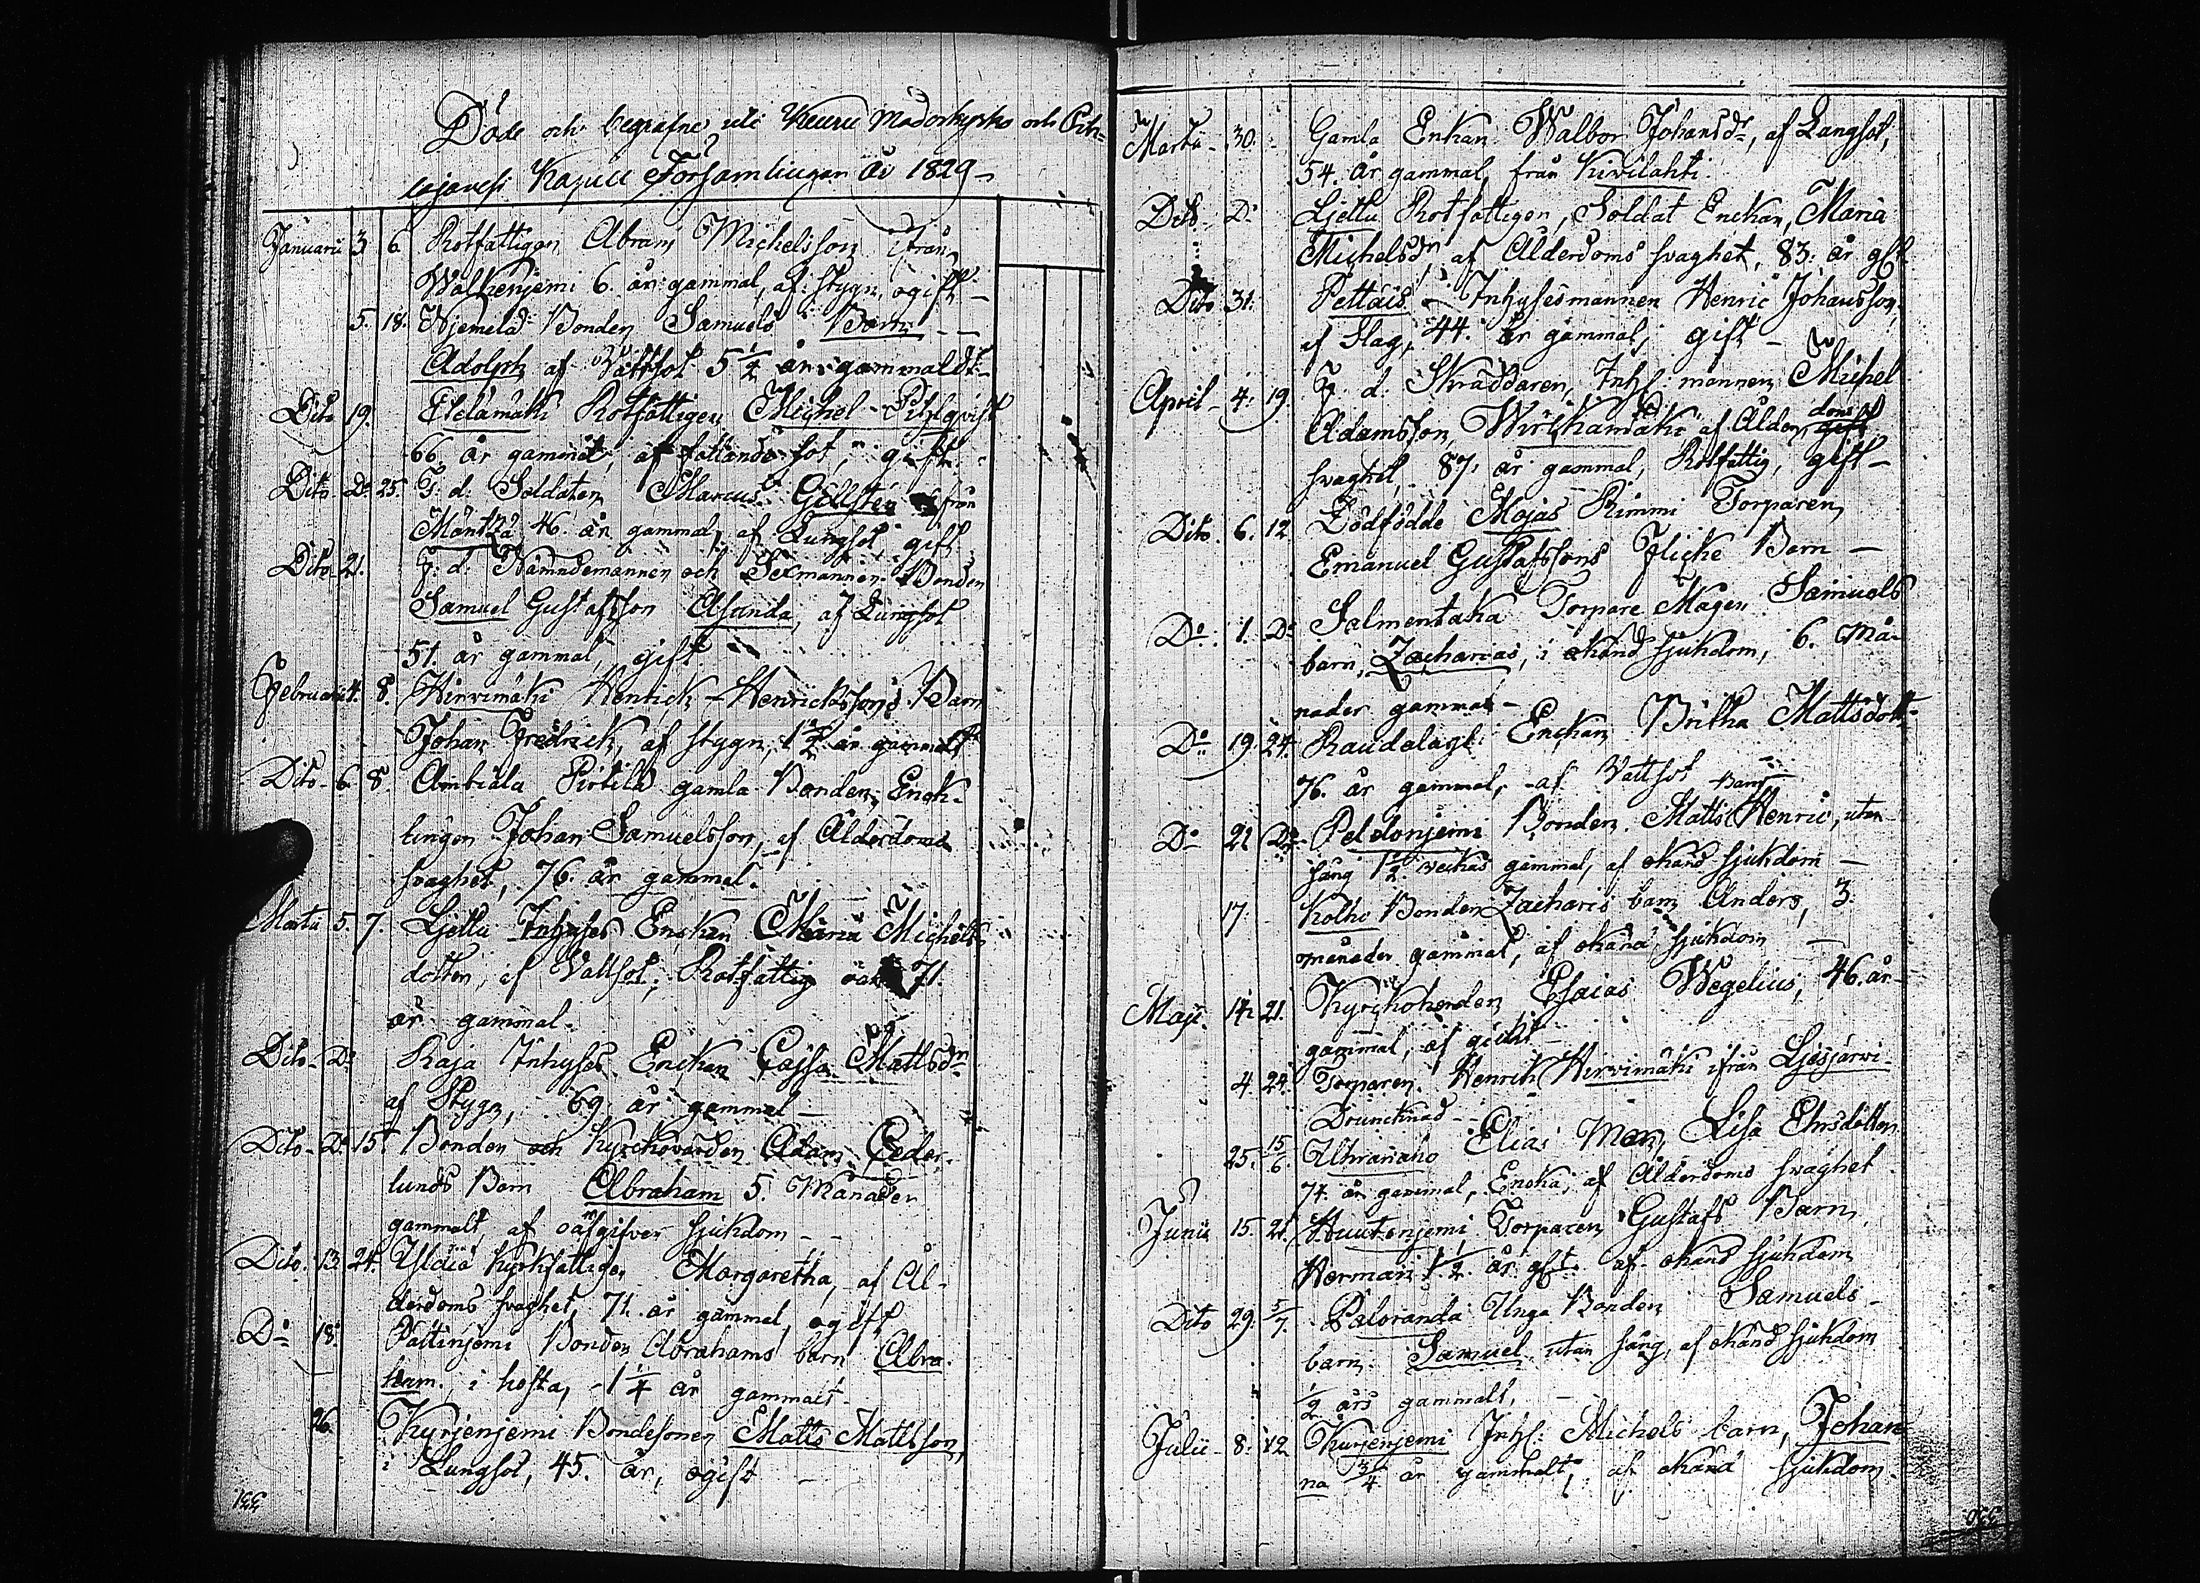 Döde och begrafne uti Keuru Moderkyrko och Pih-
lajavesi Kapell Församlingar År 1829
Januarii 3 6 Rotfattigen Abram Michelsson ifrån
Walkenjemi 6. år gammal, af stygn, ogift
5. 18. Njemelä Bonden Samuels Barn
Adolph af Vattsot 5 1/2 år gammalt
Dito 19. Etelämäki Rotfattigen Michel Pihlqvist
66 år gammal, af fallande sot, gift
Dito Do 25. F: d: Soldaten Marcus Gillstén från
Mäntzä, 46. år gammal, af Lungsot gift
Dito 21. F: d: Nämndemannen och Sexmannen Bonden
Samuel Gustafsson Asunda, af Lungsot
51. år gammal, gift
Februarii 4. 8. Hirvimäki Henrick Henricksons Barn
Johan Fredrick, af stygn, 1 1/2 år gammalt
Dito 6 8. Ambiala Pirtilä gamla Bonden, Enck-
lingen Johan Samuelsson, af Ålderdoms
svaghet, 76. år gammal.
Martii 5. 7. Ljettu Inhyses Enckan Maria Michels-
dotter, af Vattsot, Rotfattig 71.
år gammal.
Dito Do Raja Inhyses Enckan Cajsa Mattsdr
af Stygn, 69 år gammal
Dito Do 15. Bonden och Kyrckovärden Adam Ceder-
lunds Barn Abraham 5. Månader
gammalt, af oangifven sjukdom
Dito 13. 24. Yldiä Kyrkfattige Margaretha, af Ål-
derdoms svaghet, 71. år gammal, ogift
Do 18. Pättinjemi Bonden Abrahams barn Abra-
ham. i hosta, 1 1/4 år gammalt
26. Kurjenjemi Bondesonen Matts Mattsson,
i Lungsot, 45. år, ogift
331
Martii 30. Gamla Enkan Walbor Johansdr, af Langsot,
54. år gammal, från Kivilahti.
Dito Do Ljettu Rotfattigen, Soldat Enckan, Maria
Michelsdr af Ålderdoms svaghet, 83. år glt.
Dito 31. Pettäis Inhysesmannen Henric Johansson,
af Slag, 44. år gammal, gift
April 4. 19. F. d. Skräddaren, Inhs: mannen Michel
Adamsson, Wirckamäki af Ålderdoms
svaghet, 87. år gammal, Rotfattig, gift
Dito 6. 12. Dödfödde Mojas Rimmi Torparen
Emanuel Gustafssons Flicke Barn
Do 1. Do Salmentaka Torpare Mågen Samuels
barn, Zacharias, i okänd sjukdom, 6. Må-
nader gammal
Do 19. 24. Enckan Britha Mattsdott
76. år gammal, af Vattsot
Do 21 Do Peldonjemi Bonden Matts barn Henric, utan
säng 1 1/2 veckas gammal, af okänd sjukdom
17. Kolho Bonden Zacharis barn Anders, 3.
månader gammal, af okänd sjukdom
Maji 14. 21. Kyrckoherden Esaias Wegelius, 46. år
gammal, af gickt
4. 24. Torparen Henrik Hirvimäki ifrån Ljesjärvi
Drunknad
25. 15/6. Uhranaho Elias Mor, Lisa Ehrsdotter
74. år gammal, Encka, af Ålderdoms svaghet
Junii 15. 21. Huutonjemi Torparen Gustafs Barn
Herman 1 1/2 år glt. af okänd sjukdom
Dito 29. 5/7. Paloranda Unga Bonden Samuels
barn. Samuel, utan säng, af okänd sjukdom
1/2 års gammalt,
Julii 8. 12 Kurjenjemi Inhs: Michels barn, Johan-
na 3/4 år gammalt, af okänd sjukdom
330